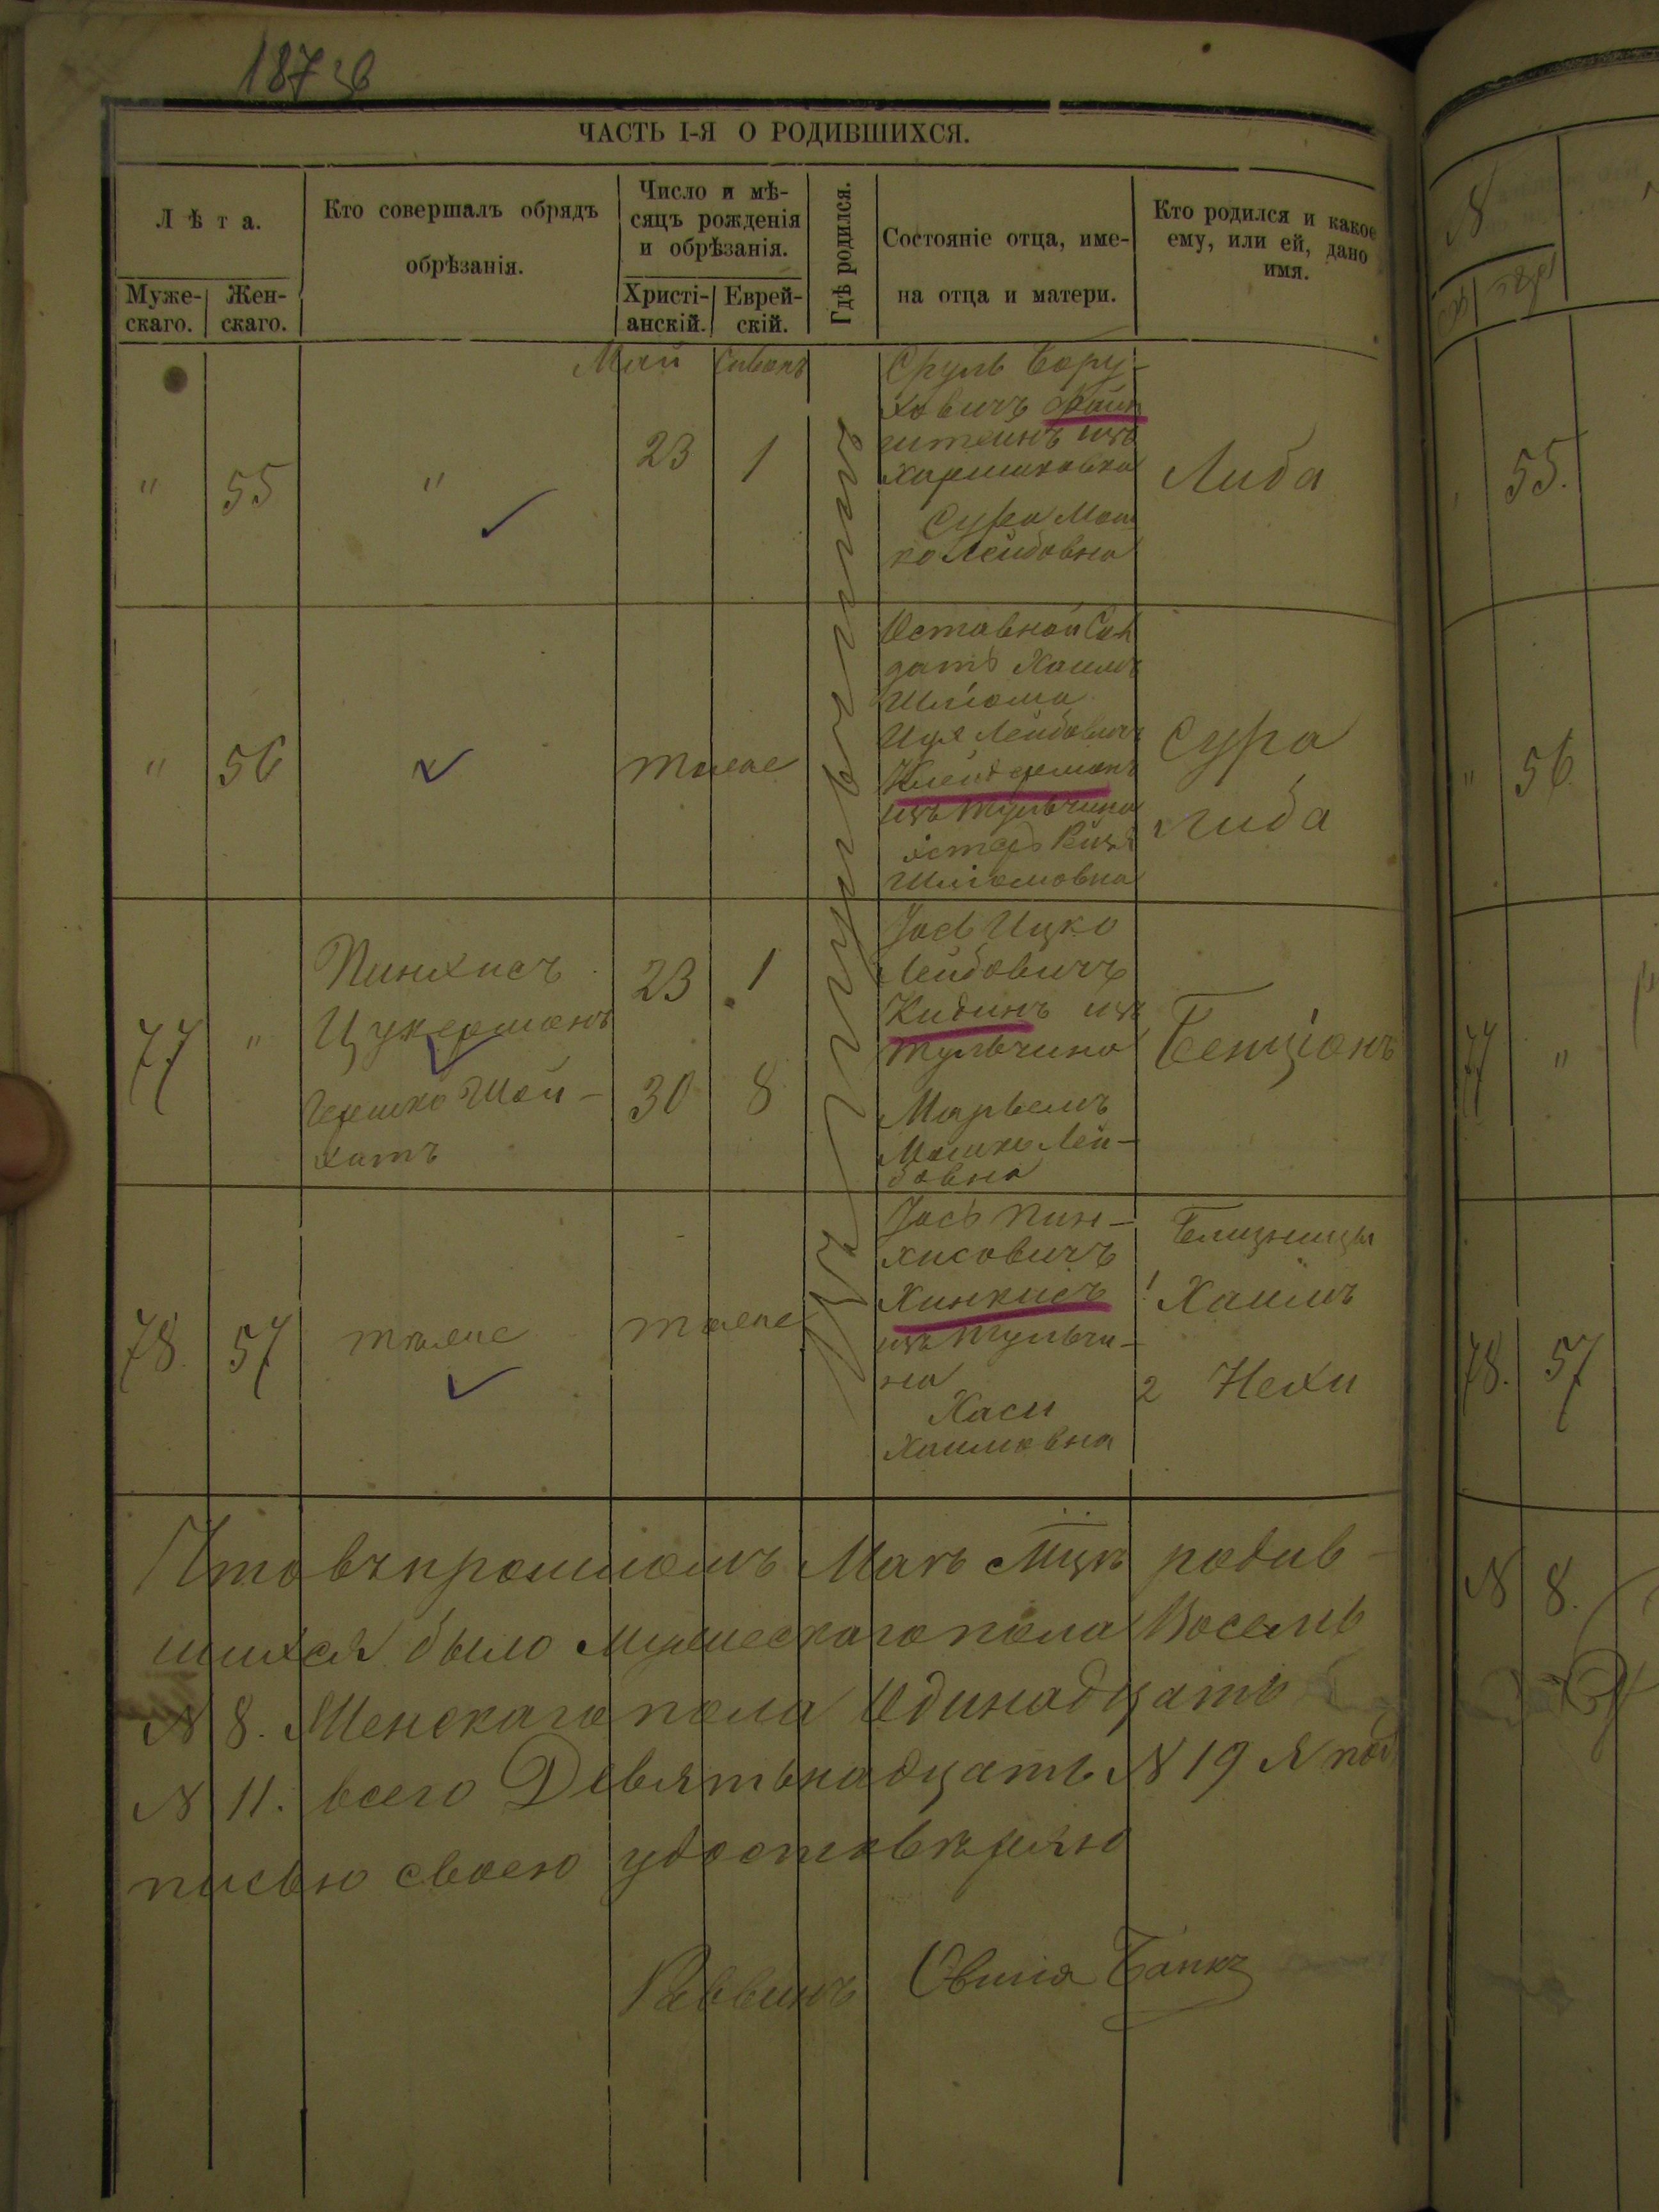 1876
ЧАСТЬ I-Я О РОДИВШИХСЯ.
Лѣта.
Муже-
скаго.
Жен-
скаго.
Кто совершалъ обрядъ
обрѣзанія.
Число и мѣ-
сяцъ рожденія
и обрѣзанія.
Христі-
анскій.
Еврей-
скій.
Гдѣ родился.
Состояніе отца, име-
на отца и матери.
Кто родился и какое
ему, или ей, дано
имя.
Май Сиванъ
" 55 " 23 1
Сруль Бору-
ховичъ
штейнъ изъ
Сура Мош
ко Лейбовна
Либа
" 56 тоже
Отставной Сол
датъ Хаимъ
Шлiома
Лейбовичъ
Клейдерманъ
изъ Тульчина
Шлiомовна
Сура
Либа
77 "
Пинхисъ
Цукерманъ
Гершко Шой-
хатъ
23 1
30 8
Іось Ицко
Лейбовичъ
Кидинъ изъ
Тульчина
Марьемъ
Мошко Лей-
бовна
Бенціонъ
78. 57 тоже тоже
Іось Пин-
хисовичъ
Хинкисъ
изъ Тульчи-
на
Хаси
Хаимовна
Близницы
1 Хаимъ
2 Нехи
Что въ прошломъ Маѣ мцѣ родив-
шихся было мужескаго пола Восемь
N 8. Женскаго пола Одинадцать
N 11. всего Девятьнадцать N 19 я под
писью своею удостовѣряю
Раввинъ Овшія Банкъ
55.
" 56
77 "
78. 57
N 8.